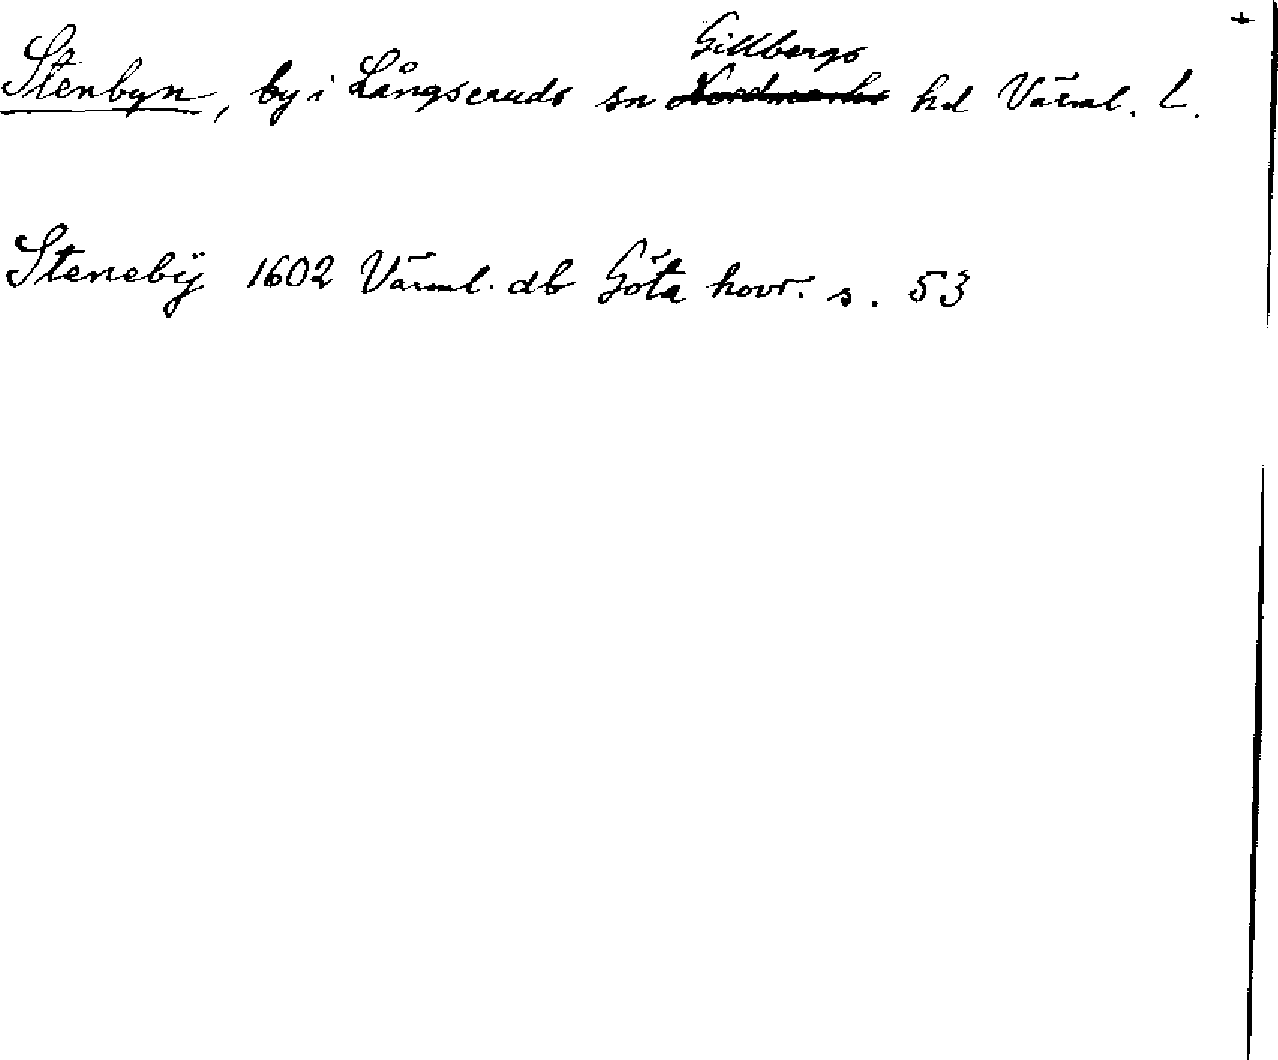 +
Stenbyn, by i Långseruds sn Gillbergs hd Värml. L.
Stenebÿ 1602 Värml. db Göta hovr. s. 53